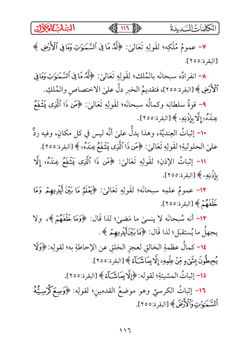 الكلمات السديدة ١١٦
٧- عمومُ مُلكِه؛ لقولِهِ تَعَالىٰ: ﴿لَهُ مَا فِي السَّمَوَتِ وَمَا فِي الْأَرْضِ﴾
[البقرة:٢٥٥].
٨- انفرادُه سبحانَه بالمُلك؛ لقولِهِ تَعَالىٰ: ﴿لَّهُ مَا فِي السَّمَوَتِ وَمَا فِي
الْأَرْضِ﴾ [البقرة:٢٥٥]، فتقديمُ الخبرِ دلَّ علىٰ الاختصاص والمُلكِ.
٩- قوةُ سلطانِه وكمالُه سبحانَه؛ لقولِهِ تَعَالىٰ: ﴿مَن ذَا الَّذِي يَشْفَعُ
عِندَهُ إِلَّا بِإِذْنِهِ﴾ [البقرة:٢٥٥].
١٠- إثباتُ العِنديَّة، وهذا يدلُّ علىٰ أنَّه ليس في كلِّ مكانٍ، وفيه ردٌّ
علىٰ الحلوليةِ؛ لقولِهِ تَعَالىٰ: ﴿مَن ذَا الَّذِي يَشْفَعُ عِندَهُ﴾ [البقرة:٢٥٥].
١١- إثباتُ الإذنِ؛ لقولِهِ تَعَالىٰ: ﴿مَن ذَا الَّذِي يَشْفَعُ عِندَهُ إِلَّا
بِإِذْنِهِ﴾ [البقرة:٢٥٥].
١٢- عمومُ علمِه سبحانَه؛ لقولِهِ تَعَالىٰ: ﴿يَعْلَمُ مَا بَيْنَ أَيْدِيهِمْ وَمَا
خَلْفَهُمْ﴾ [البقرة:٢٥٥].
١٣- أنه سُبحانَه لا ينسىٰ ما مَضىٰ؛ لذا قَالَ: ﴿وَمَا خَلْفَهُمْ﴾، ولا
يجهلُ ما يُستقبَل؛ لذا قَالَ: ﴿مَا بَيْنَ أَيْدِيهِمْ﴾.
١٤- كمالُ عظمةِ الخالقِ لعجزِ الخلقِ عن الإحاطةِ به؛ لقوله: ﴿وَلَا
يُحِيطُونَ بِشَيْءٍ مِّنْ عِلْمِهِ إِلَّا بِمَا شَاءَ﴾ [البقرة:٢٥٥].
١٥- إثباتُ المشيئةِ؛ لقوله: ﴿إِلَّا بِمَا شَاءَ﴾ [البقرة:٢٥٥].
١٦- إثباتُ الكرسيِّ وهو موضعُ القدمينِ؛ لقوله: ﴿وَسِعَ كُرْسِيُّهُ
السَّمَوَتِ وَالْأَرْضَ﴾ [البقرة:٢٥٥].
١١٦